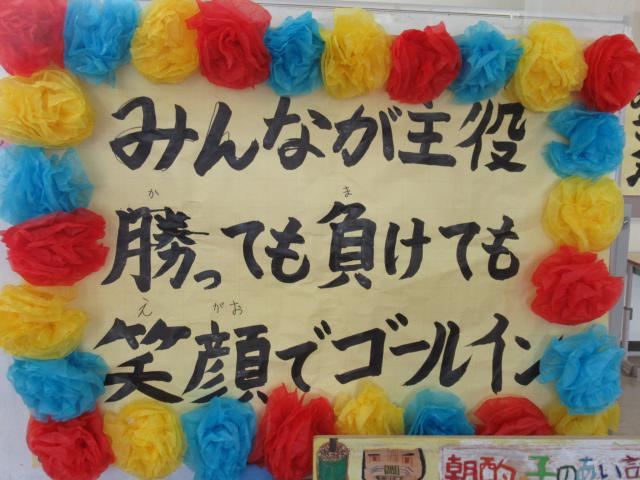 みんなが主役
か ま
勝っても負けても
え がお
笑顔でゴールイン
朝酌 子のあい言